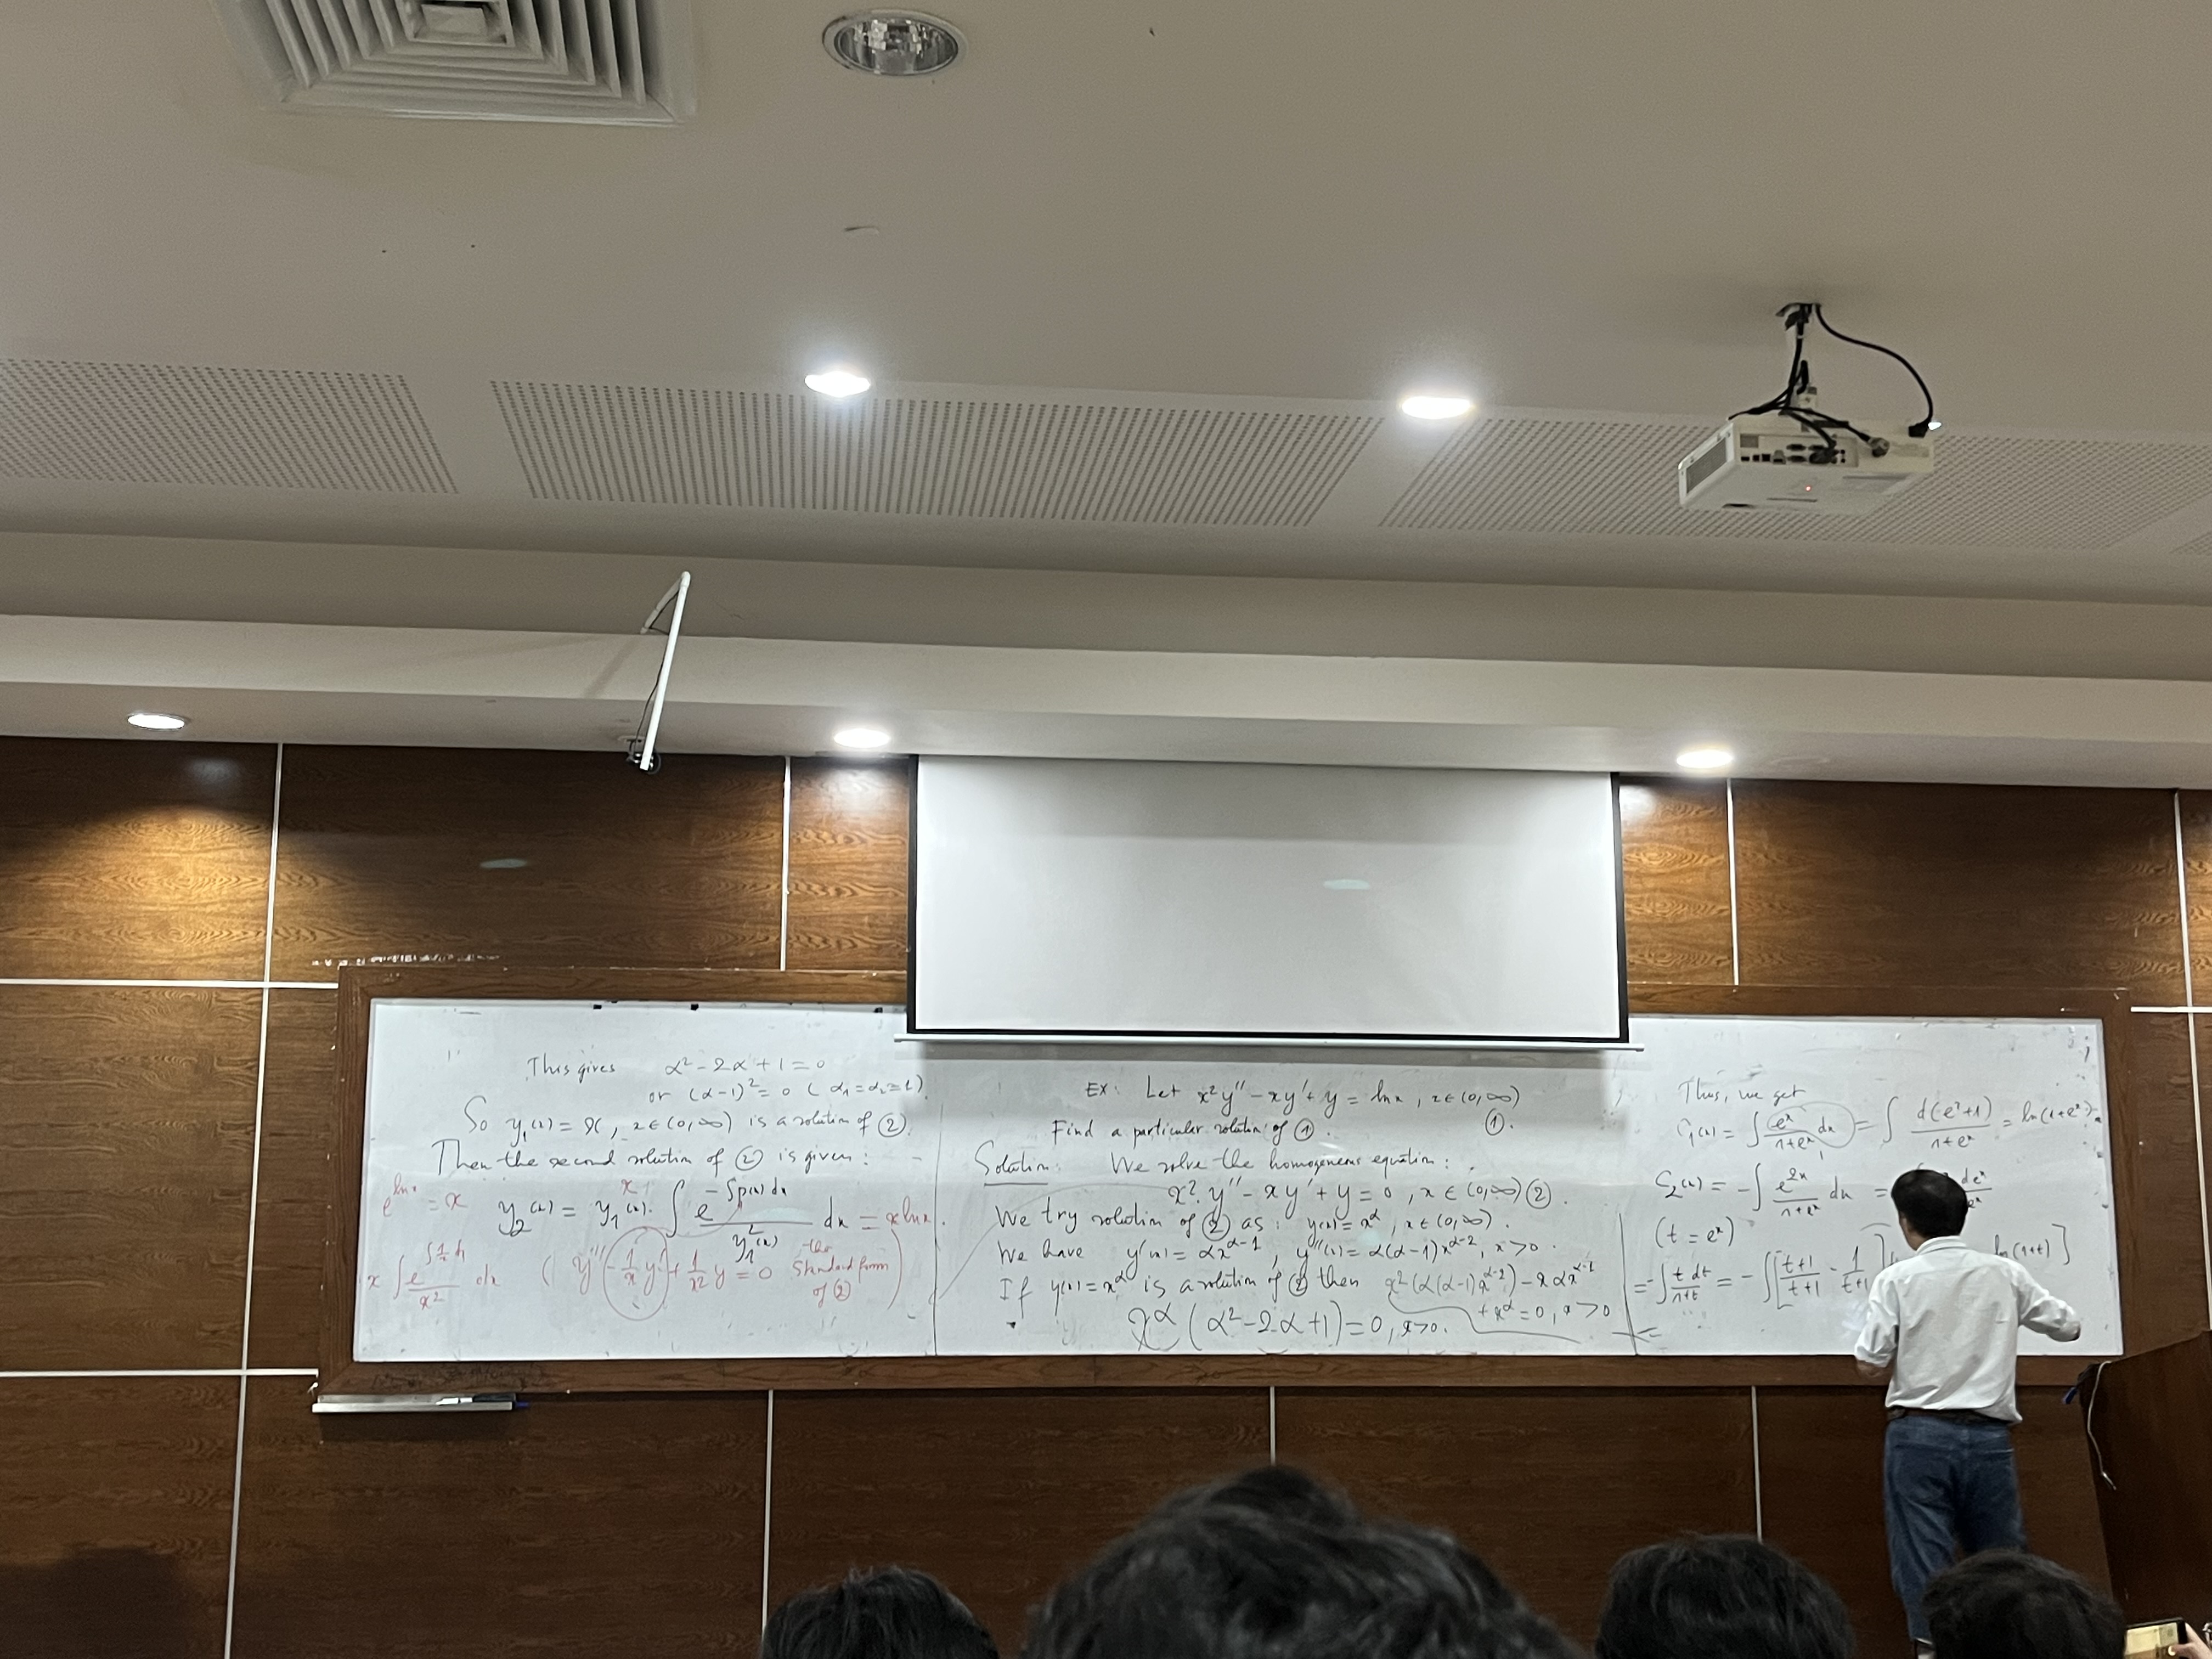 This gives α² - 2α + 1 = 0
or (α-1)² = 0 (α₁ = α₂ = 1)
So y₁(x) = x, x ∈ (0,∞) is a solution of ②.
Then the second solution of ② is given:
e^{lnx} = x
x
y₂(x) = y₁(x). ∫ e^{-∫p(x)dx} / y₁²(x) dx = x lnx.
x ∫ e^{∫ 1/x dx} / x² dx ( y'' - 1/x y' + 1/x² y = 0 the standard form of ② )
Ex: Let x²y'' - xy' + y = lnx, x ∈ (0,∞)
Find a particular solution of ①. ①.
Solution: We solve the homogeneous equation:
x² y'' - xy' + y = 0, x ∈ (0,∞) ②.
We try solution of ② as: y(x) = x^α, x ∈ (0,∞).
We have y'(x) = αx^{α-1}, y''(x) = α(α-1)x^{α-2}, x > 0.
If y(x) = x^α is a solution of ② then x²(α(α-1)x^{α-2}) - x αx^{α-1}
+ x^α = 0, x > 0
x^α (α² - 2α + 1) = 0, x > 0.
Thus, we get
C₁(x) = ∫ e^x / (1+e^x) dx = ∫ d(e^x+1) / (1+e^x) = ln(1+e^x)
C₂(x) = - ∫ e^{2x} / (1+e^x) dx =
(t = e^x)
= -∫ t dt / (1+t) = - ∫ [ (t+1)/(t+1) - 1/(t+1) ] ln(1+t) ]